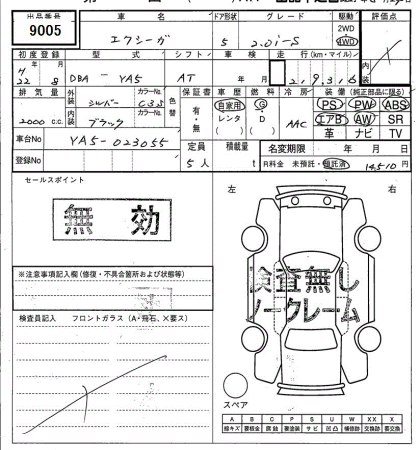 出品番号 車名 ドア形状 グレード 駆動 評価点
9005 エクシーガ 5 2.0i-S 2WD 4WD
初度登録 型式 シフト 車検 走行(km・マイル)
年 月 年 月
22 8 DBA - YA5 AT 2,9,3,1,6
排気量 外装 カラーNo. 色替 保証書 車歴 燃料 冷房 装備(純正部品に限る)
シルバー C3S 有・無 自家用 レンタ G D AAC PS PW ABS
内装 カラーNo. エアB AW SR
2000 c.c. ブラック 革 ナビ TV
車台No YA5-023055 定員 積載量 名変期限 年 月 日
登録No 5人 t R料金 未預託・預託済 14,510 円
セールスポイント 左 右
無効
検査無し
ノークレーム
※注意事項記入欄(修復・不具合箇所および状態等)
検査員記入 フロントガラス(A・飛石、×要ス)
スペア
A B C P S U W X XX
線キズ 要板金 腐蝕 要塗装 サビ 凹凸 補修跡 要交換 交換跡